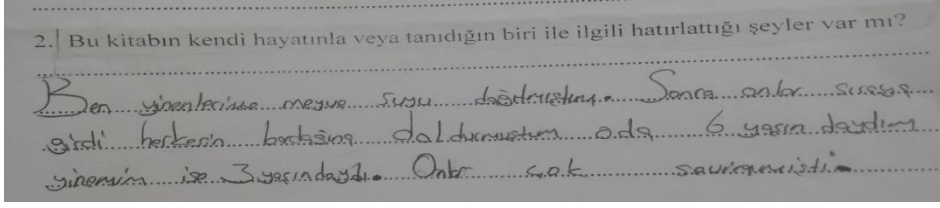 2. Bu kitabın kendi hayatınla veya tanıdığın biri ile ilgili hatırlattığı şeyler var mı?
Ben yigenlerime meyve suyu dağıtmıştım. Sonra onlar sıraya
girdi herkesin bardağına doldurmuştum o da 6 yaşın daydım
yigenim ise 3 yaşındaydı. Onlar çok